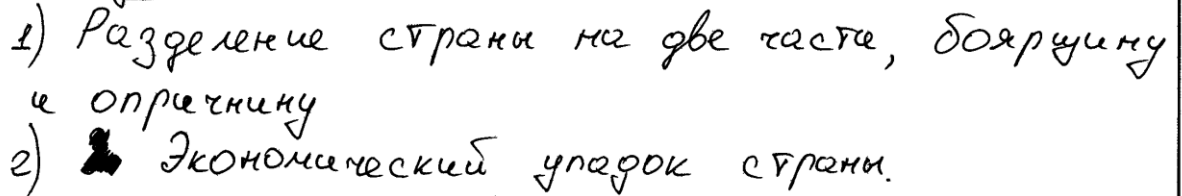 1) Разделение страны на две части, боярщину
и опричнину
2) Экономический упадок страны.